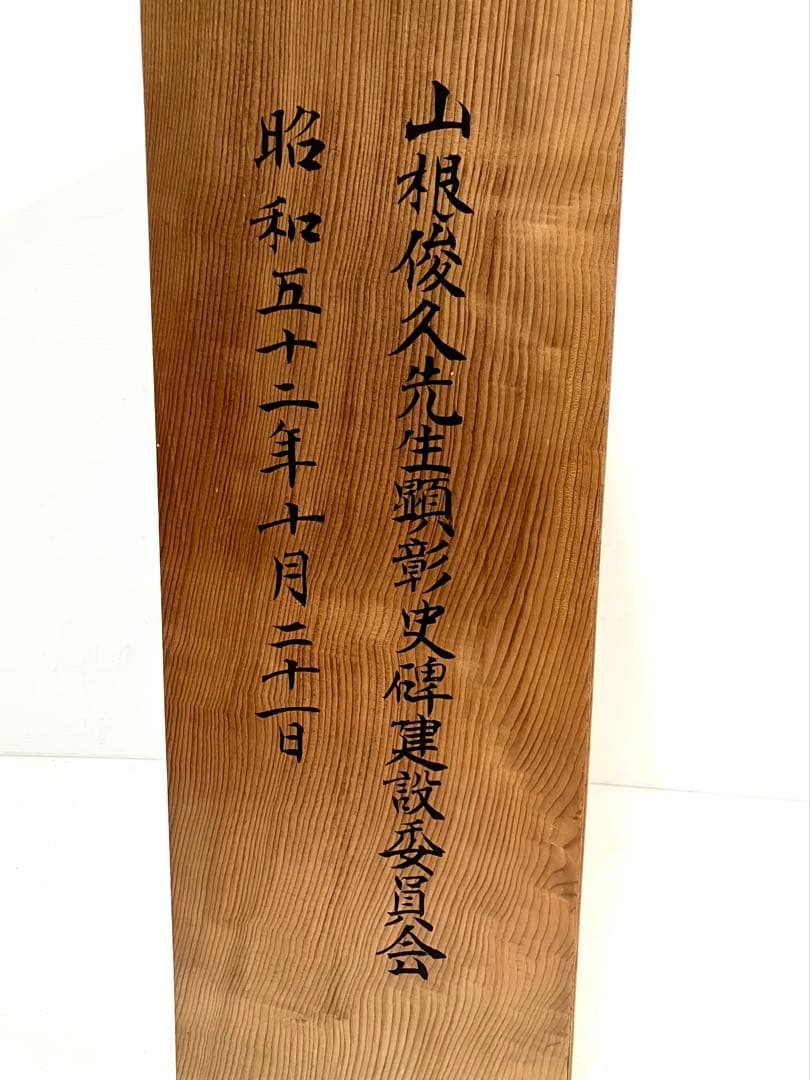 山根俊久先生顕彰史碑建設委員会
昭和五十二年十月二十一日